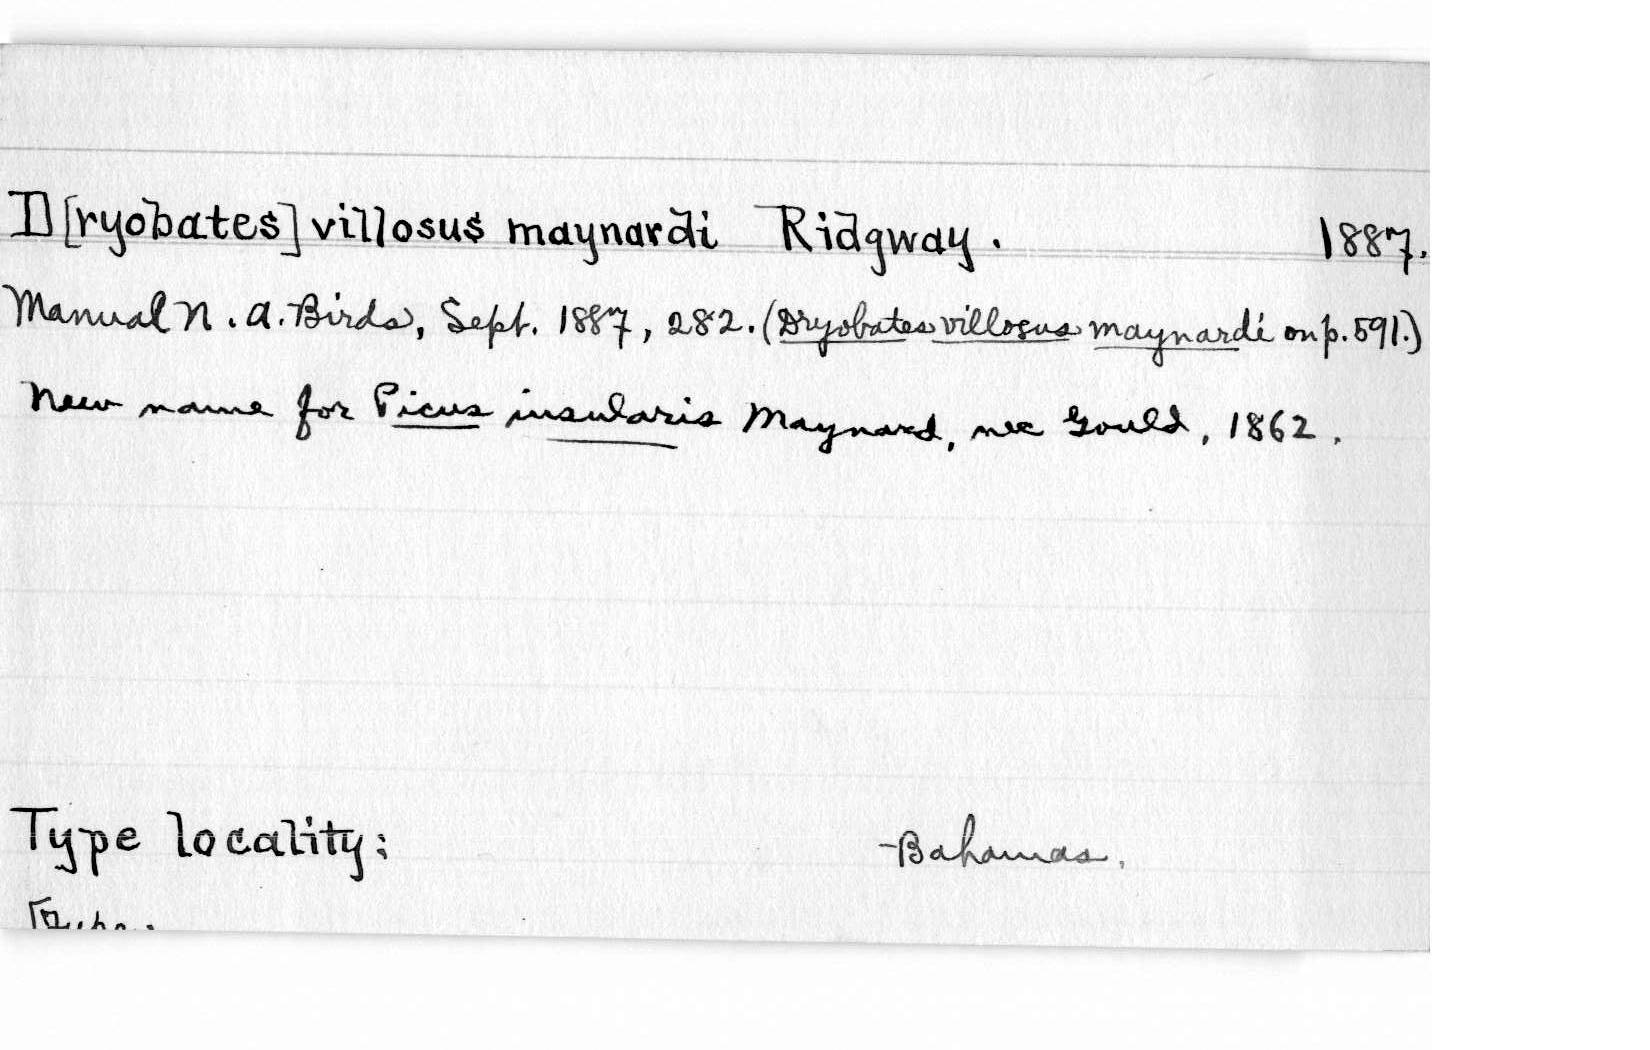 D[ryobates] villosus maynardi Ridgway. 1887.
Manual N. A. Birds, Sept. 1887, 282. (Dryobates villosus maynardi on p. 591.)
New name for Picus insularis Maynard, nec Gould, 1862.
Type locality: Bahamas.
Type: